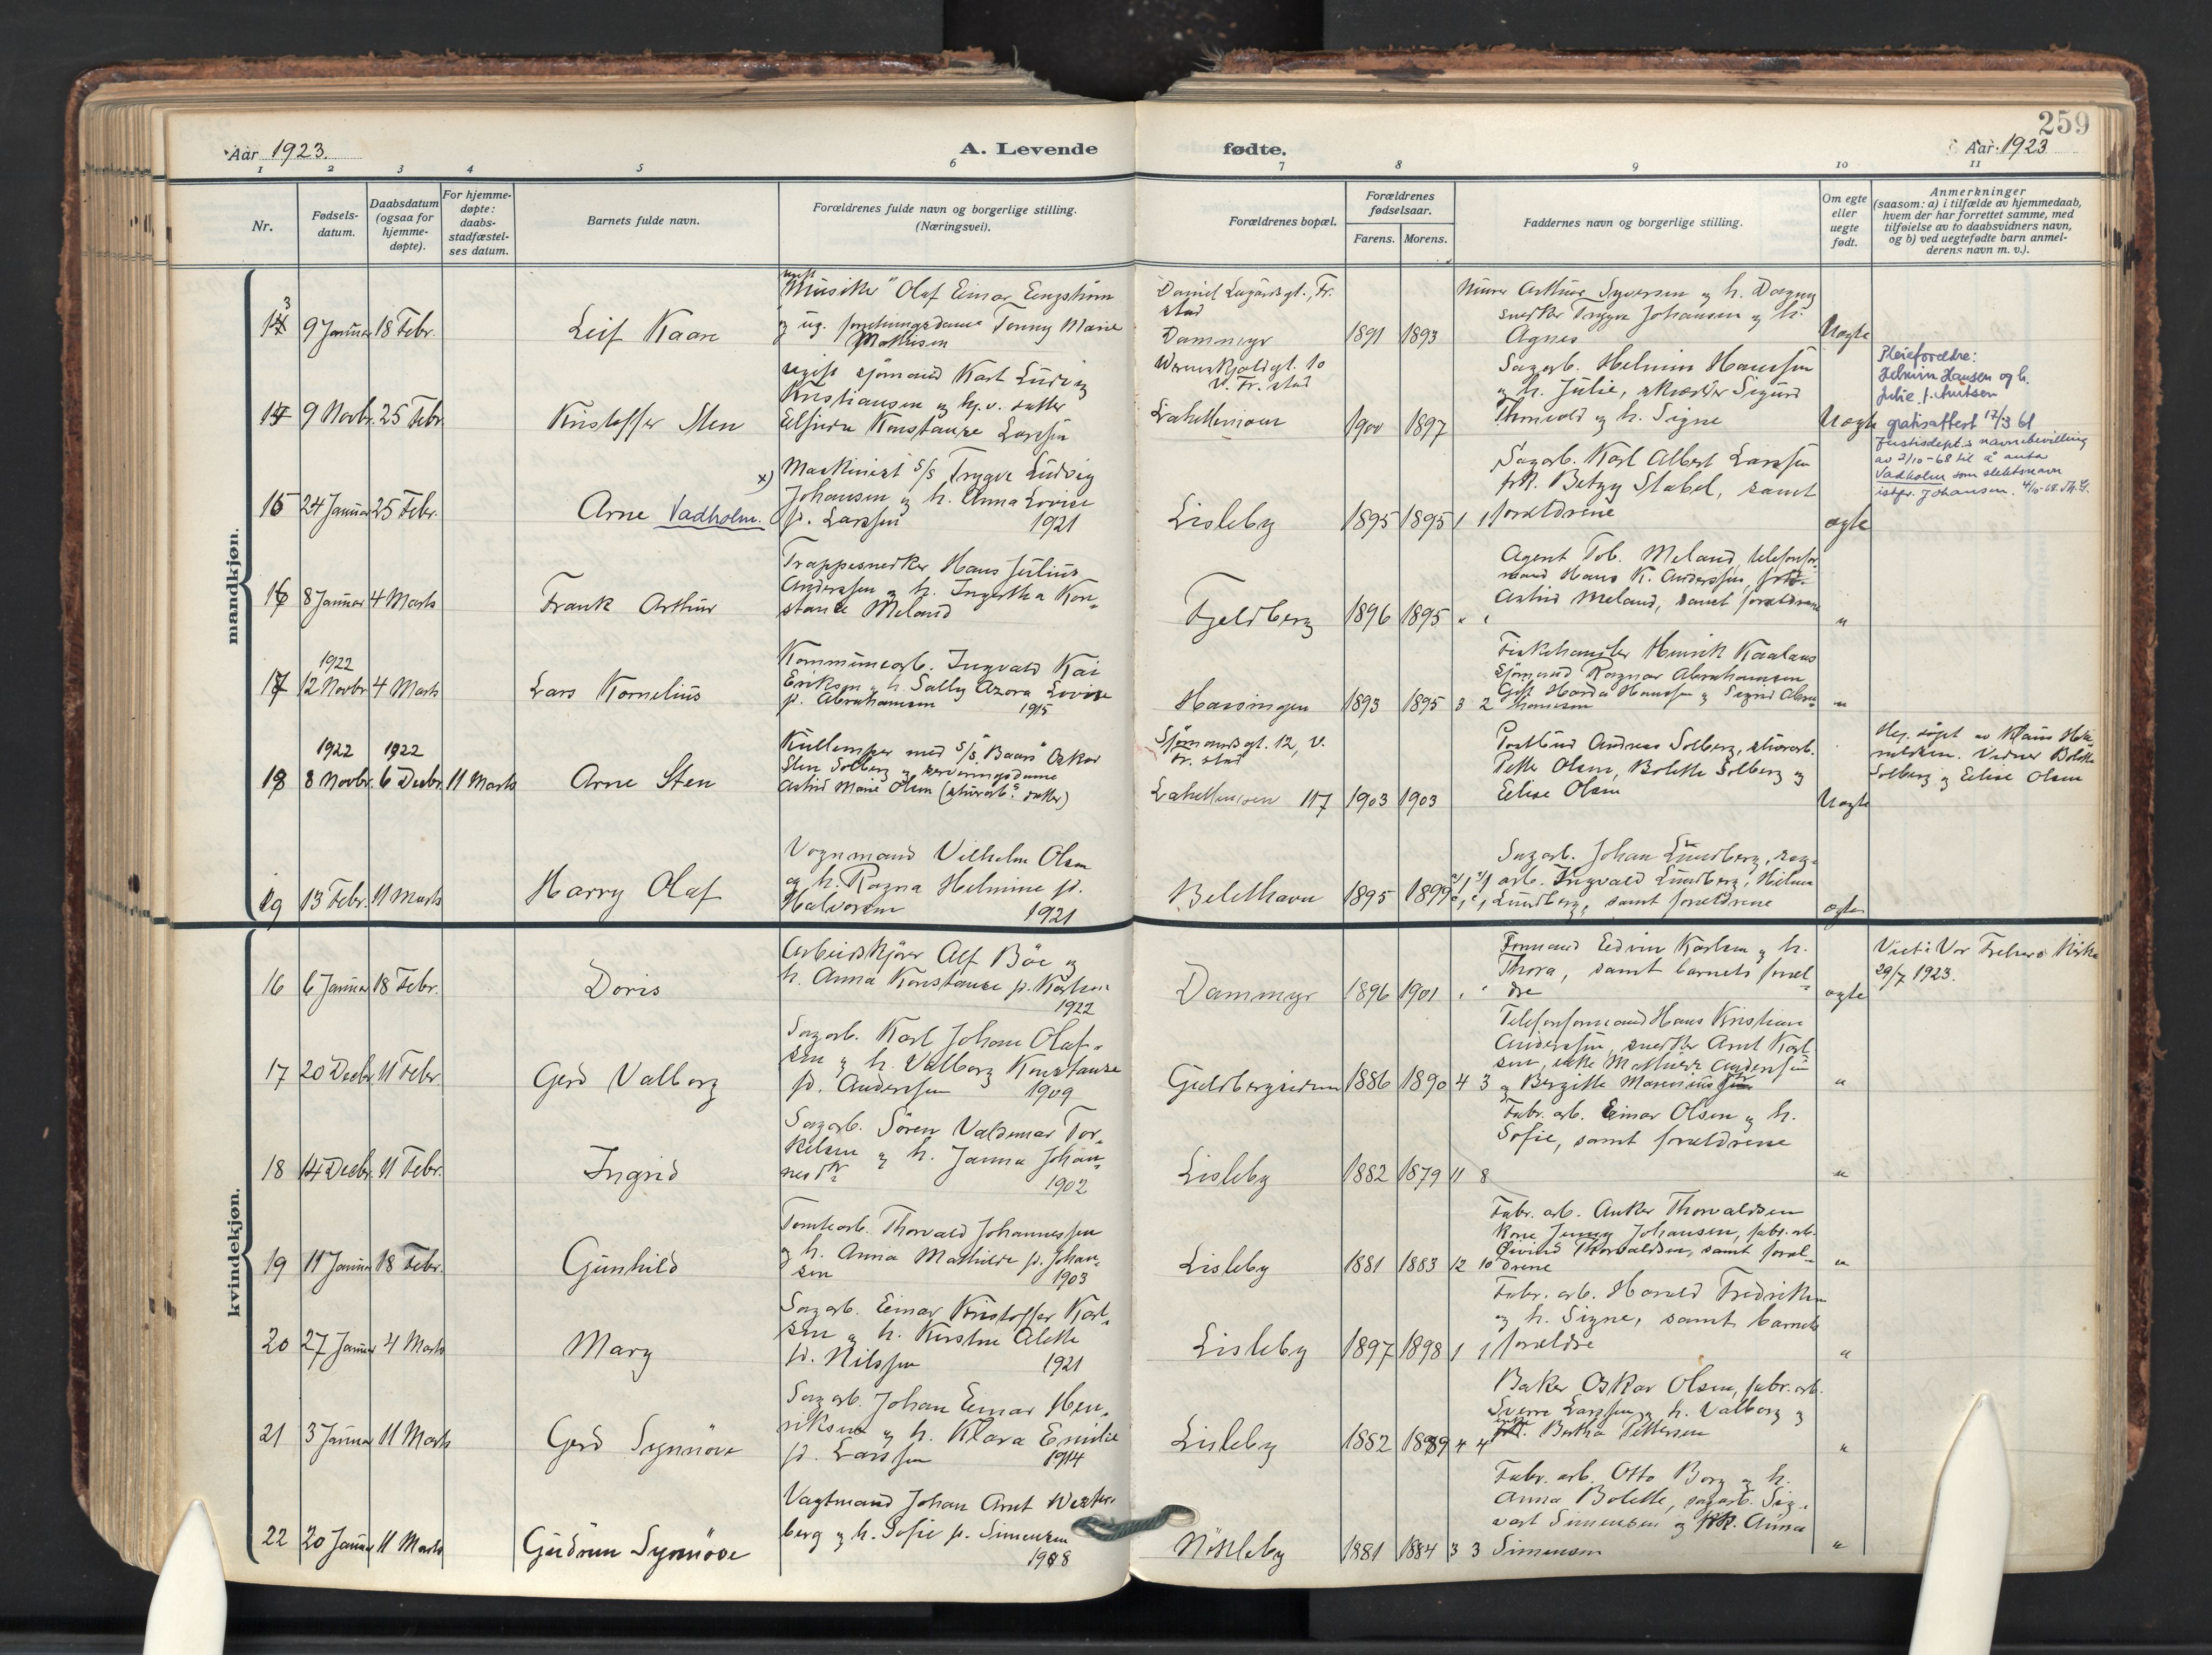 259
Aar 1923.
A. Levende
fødte.
Aar 1923
1 2 3 4 5 6 7 8 9 10 11
Nr.
Fødsels-
datum.
Daabsdatum
(ogsaa for
hjemme-
døpte).
For hjemme-
døpte:
daabs-
stadfæstel-
ses datum.
Barnets fulde navn.
Forældrenes fulde navn og borgerlige stilling.
(Næringsvei).
Forældrenes bopæl.
Forældrenes
fødselsaar.
Farens. Morens.
Faddernes navn og borgerlige stilling.
Om egte
eller
uegte
født.
Anmerkninger
(saasom: a) i tilfælde av hjemmedaab,
hvem der har forrettet samme, med
tilføielse av to daabsvidners navn,
og b) ved uegtefødte barn anmel-
derens navn m. v.).
mandkjøn.
13
9 Januar 18 Febr.
Leif Kaare
Musiker Olaf Einar Engstrøm
og ug. forretningsdame Tonny Marie
Mathisen
Fr.
stad
Dammyr
1891 1893
Murer Arthur Syversen og h. Dagny
snedker Trygve Johansen og h.
Agnes
Uegte
14
9 Novbr. 25 Febr.
Kristoffer Sten
ugift sjømand Karl Ludvig
Kristiansen og hj.v. datter
Elfrida Konstanse Larssen
Wernerskjoldgt. 10
v. Fr.stad
1900 1897
Sagarb. Helmin Hanssen
og h. Julie, Sigurd
Thorvald og h. Signe
Uegte
Pleieforældre:
Helmin Hansen og h.
Julie f. Knutsen
gratisattest 17/3 61
15
24 Januar 25 Febr.
Arne Vadholm.
x) Maskinist S/S Trygve Ludvig
Johansen og h. Anna Lovise
fd. Larssen 1921
Lisleby
1895 1895 1 1
Sagarb. Karl Albert Larssen
frk. Betzy Stabel, samt
forældrene
egte
Justisdept.s navnebevilling
av 2/10-68 til å anta
Vadholm som slektsnavn
istf. Johansen. 4/10-68.
16
8 Januar 4 Marts
Frank Arthur
Trappesnedker Hans Julius
Anderssen og h. Ingertha Kon-
stance Meland
Fjeldberg
1896 1895 " "
Agent Tob. Meland, telefonfor-
mand Hans K. Anderssen, frk.
Astrid Meland, samt forældrene
"
17
1922
12 Novbr 4 Marts
Lars Kornelius
Kommunearb. Ingvald Kai
Eriksen og h. Sally Azora Lovise
fd. Abrahamsen 1915
Hassingen
1893 1895 3 2
Fiskehandler Henrik Kaalaas
sjømand Ragnar Abrahamsen
"
18
1922 1922
8 Novbr. 6 Decbr. 11 Marts
Arne Sten
Kullemper med S/S "Baars" Oskar
Sten Solberg og serveringsdame
Astrid Marie Olsen
Sjømandsgt. 12, V.
Fr. stad
117
1903 1903
Postbud Andreas Solberg,
Petter Olsen, Bolette Solberg og
Elise Olsen
Uegte
Vidner Bolette
Solberg og Elise Olsen
19
13 Febr. 11 Marts
Harry Olaf
Vognmand Vilhelm Olsen
og h. Ragna Helmine fd.
Halvorsen 1921
Belethavn
1895 1899
Sagarb. Johan Lundberg, sag-
arb. Ingvald Lundberg, Hilma
Lundberg, samt forældrene
egte
kvindekjøn.
16
6 Januar 18 Febr.
Doris
Arbeidskjører Alf Bøe og
h. Anna Konstanse fd. Karlsen
1922
Dammyr
1896 1901
Formand Edvin Karlsen og h.
Thora, samt barnets foræl-
dre
egte
Viet i Vor Frelsers Kirke
29/7 1923.
17
20 Decbr. 11 Febr.
Gerd Valborg
Sagarb. Karl Johan Olaf-
sen og h. Valborg Konstanse
fd. Anderssen 1909
Guldbergsiden
1886 1890 4 3
Telefonformand Hans Kristian
Anderssen, snedker Arnt Karl-
sen, enke Mathilde Anderssen
og Bergitte
"
18
14 Decbr. 11 Febr.
Ingrid
Sagarb. Søren Valdemar Tor-
kelsen og h. Janna Johan-
nesdtr 1902
Lisleby
1882 1879 11 8
Fabr. arb. Einar Olsen og h.
Sofie, samt forældrene
"
19
11 Januar 18 Febr.
Gunhild
Tomtearb. Thorvald Johannessen
og h. Anna Mathilde fd. Johan-
sen 1903
Lisleby
1881 1883 12 10
Fabr. arb. Anker Thorvaldsen
kone Jenny Johansen, fabr. arb.
Øivind Thorvaldsen, samt foræl-
drene
"
20
27 Januar 4 Marts
Mary
Sagarb. Einar Kristoffer Karl-
sen og h. Kirstine Alette
fd. Nilssen 1921
Lisleby
1897 1898 1 1
Fabr. arb. Harald Fredriksen
og h. Signe, samt barnets
forældre
"
21
3 Januar 11 Marts
Gerd Synnøve
Sagarb. Johan Einar Hen-
riksen og h. Klara Emilie
fd. Larssen 1914
Lisleby
1882 1889 4 4
Baker Oskar Olsen, fabr. arb.
Sverre Larssen og h. Valborg og
enke Bertha Pettersen
"
22
20 Januar 11 Marts
Gudrun Synnøve
Vagtmand Johan Arnt Wester-
berg og h. Sofie fd. Simensen
1908
Nøkleby
1881 1884 3 3
Fabr. arb. Otto Borg og h.
Anna Bolette, sagarb. Sig-
vart Simensen og frk. Anna
Simensen
"